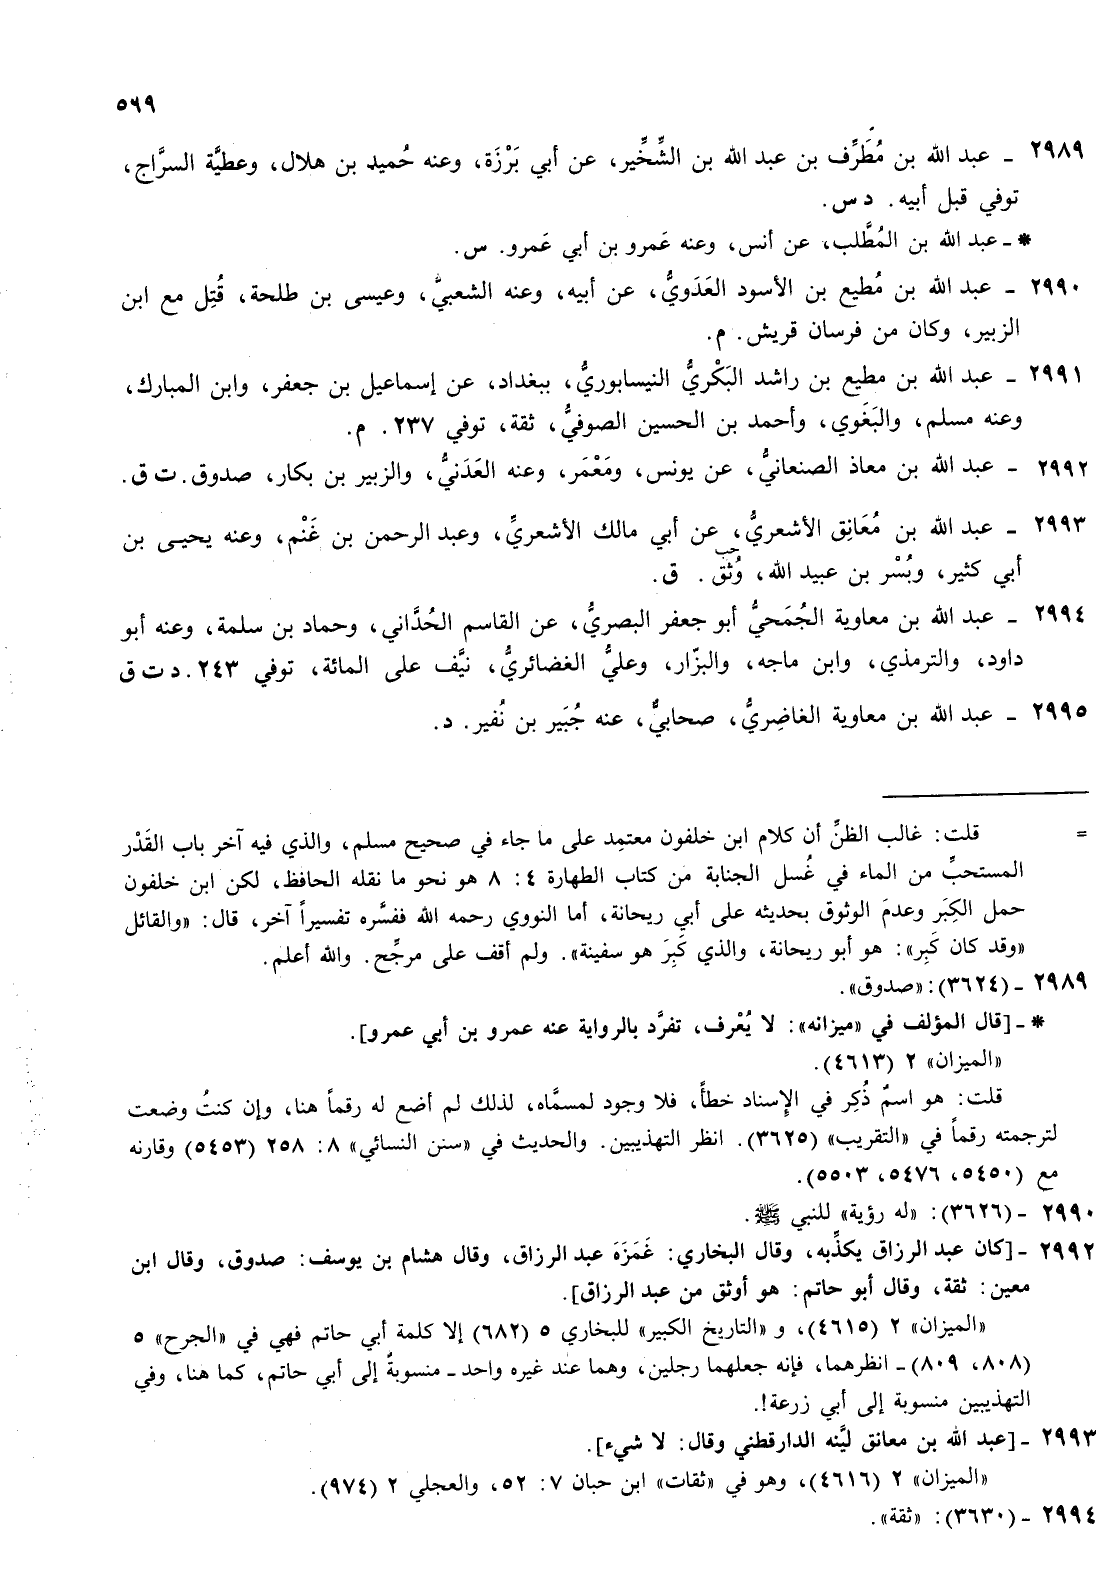 ٥٦٩
٢٩٨٩ - عبد الله بن مُطَرِّف بن عبد الله بن الشِّخِّير، عن أبي بَرْزَة، وعنه حُميد بن هلال، وعطيَّة السرَّاج،
توفي قبل أبيه. د س.
* - عبد الله بن المُطَّلب، عن أنس، وعنه عَمرو بن أبي عَمرو. س.
٢٩٩٠ - عبد الله بن مُطيع بن الأسود العَدَويُّ، عن أبيه، وعنه الشعبيُّ، وعيسى بن طلحة، قُتِل مع ابن
الزبير، وكان من فرسان قريش. م.
٢٩٩١ - عبد الله بن مطيع بن راشد البَكْريُّ النيسابوريُّ، ببغداد، عن إسماعيل بن جعفر، وابن المبارك،
وعنه مسلم، والبَغَوي، وأحمد بن الحسين الصوفيُّ، ثقة، توفي ٢٣٧. م.
٢٩٩٢ - عبد الله بن معاذ الصنعانيُّ، عن يونس، ومَعْمَر، وعنه العَدَنيُّ، والزبير بن بكار، صدوق. ت ق.
٢٩٩٣ - عبد الله بن مُعَانِق الأشعريُّ، عن أبي مالك الأشعريِّ، وعبد الرحمن بن غَنْم، وعنه يحيى بن
أبي كثير، وبُسْر بن عبيد الله، وُثِّق حب. ق.
٢٩٩٤ - عبد الله بن معاوية الجُمَحيُّ أبو جعفر البصريُّ، عن القاسم الحُدَّاني، وحماد بن سلمة، وعنه أبو
داود، والترمذي، وابن ماجه، والبزّار، وعليُّ الغضائريُّ، نيَّف على المائة، توفي ٢٤٣. د ت ق
٢٩٩٥ - عبد الله بن معاوية الغاضِريُّ، صحابيٌّ، عنه جُبَير بن نُفير. د.
= قلت: غالب الظنِّ أن كلام ابن خلفون معتمِد على ما جاء في صحيح مسلم، والذي فيه آخر باب القَدْر
المستحبِّ من الماء في غُسل الجنابة من كتاب الطهارة ٤: ٨ هو نحو ما نقله الحافظ، لكن ابن خلفون
حمل الكِبَر وعدمَ الوثوق بحديثه على أبي ريحانة، أما النووي رحمه الله ففسَّره تفسيراً آخر، قال: «والقائل
«وقد كان كَبِر»: هو أبو ريحانة، والذي كَبِرَ هو سفينة». ولم أقف على مرجِّح. والله أعلم.
٢٩٨٩ - (٣٦٢٤): «صدوق».
* - [قال المؤلف في «ميزانه»: لا يُعْرف، تفرَّد بالرواية عنه عمرو بن أبي عمرو].
«الميزان» ٢ (٤٦١٣).
قلت: هو اسمٌ ذُكِر في الإسناد خطأً، فلا وجود لمسمَّاه، لذلك لم أضع له رقماً هنا، وإن كنتُ وضعت
لترجمته رقماً في «التقريب» (٣٦٢٥). انظر التهذيبين. والحديث في «سنن النسائي» ٨: ٢٥٨ (٥٤٥٣) وقارنه
مع (٥٤٥٠، ٥٤٧٦، ٥٥٠٣).
٢٩٩٠ - (٣٦٢٦): «له رؤية» للنبي ﷺ.
٢٩٩٢ - [كان عبد الرزاق يكذِّبه، وقال البخاري: غَمَزَهَ عبد الرزاق، وقال هشام بن يوسف: صدوق، وقال ابن
معين: ثقة، وقال أبو حاتم: هو أوثق من عبد الرزاق].
«الميزان» ٢ (٤٦١٥)، و «التاريخ الكبير» للبخاري ٥ (٦٨٢) إلا كلمة أبي حاتم فهي في «الجرح» ٥
(٨٠٨، ٨٠٩) - انظرهما، فإنه جعلهما رجلين، وهما عند غيره واحد - منسوبةٌ إلى أبي حاتم، كما هنا، وفي
التهذيبين منسوبة إلى أبي زرعة!.
٢٩٩٣ - [عبد الله بن معانق ليَّنه الدارقطني وقال: لا شيء].
«الميزان» ٢ (٤٦١٦)، وهو في «ثقات» ابن حبان ٧: ٥٢، والعجلي ٢ (٩٧٤).
٢٩٩٤ - (٣٦٣٠): «ثقة».